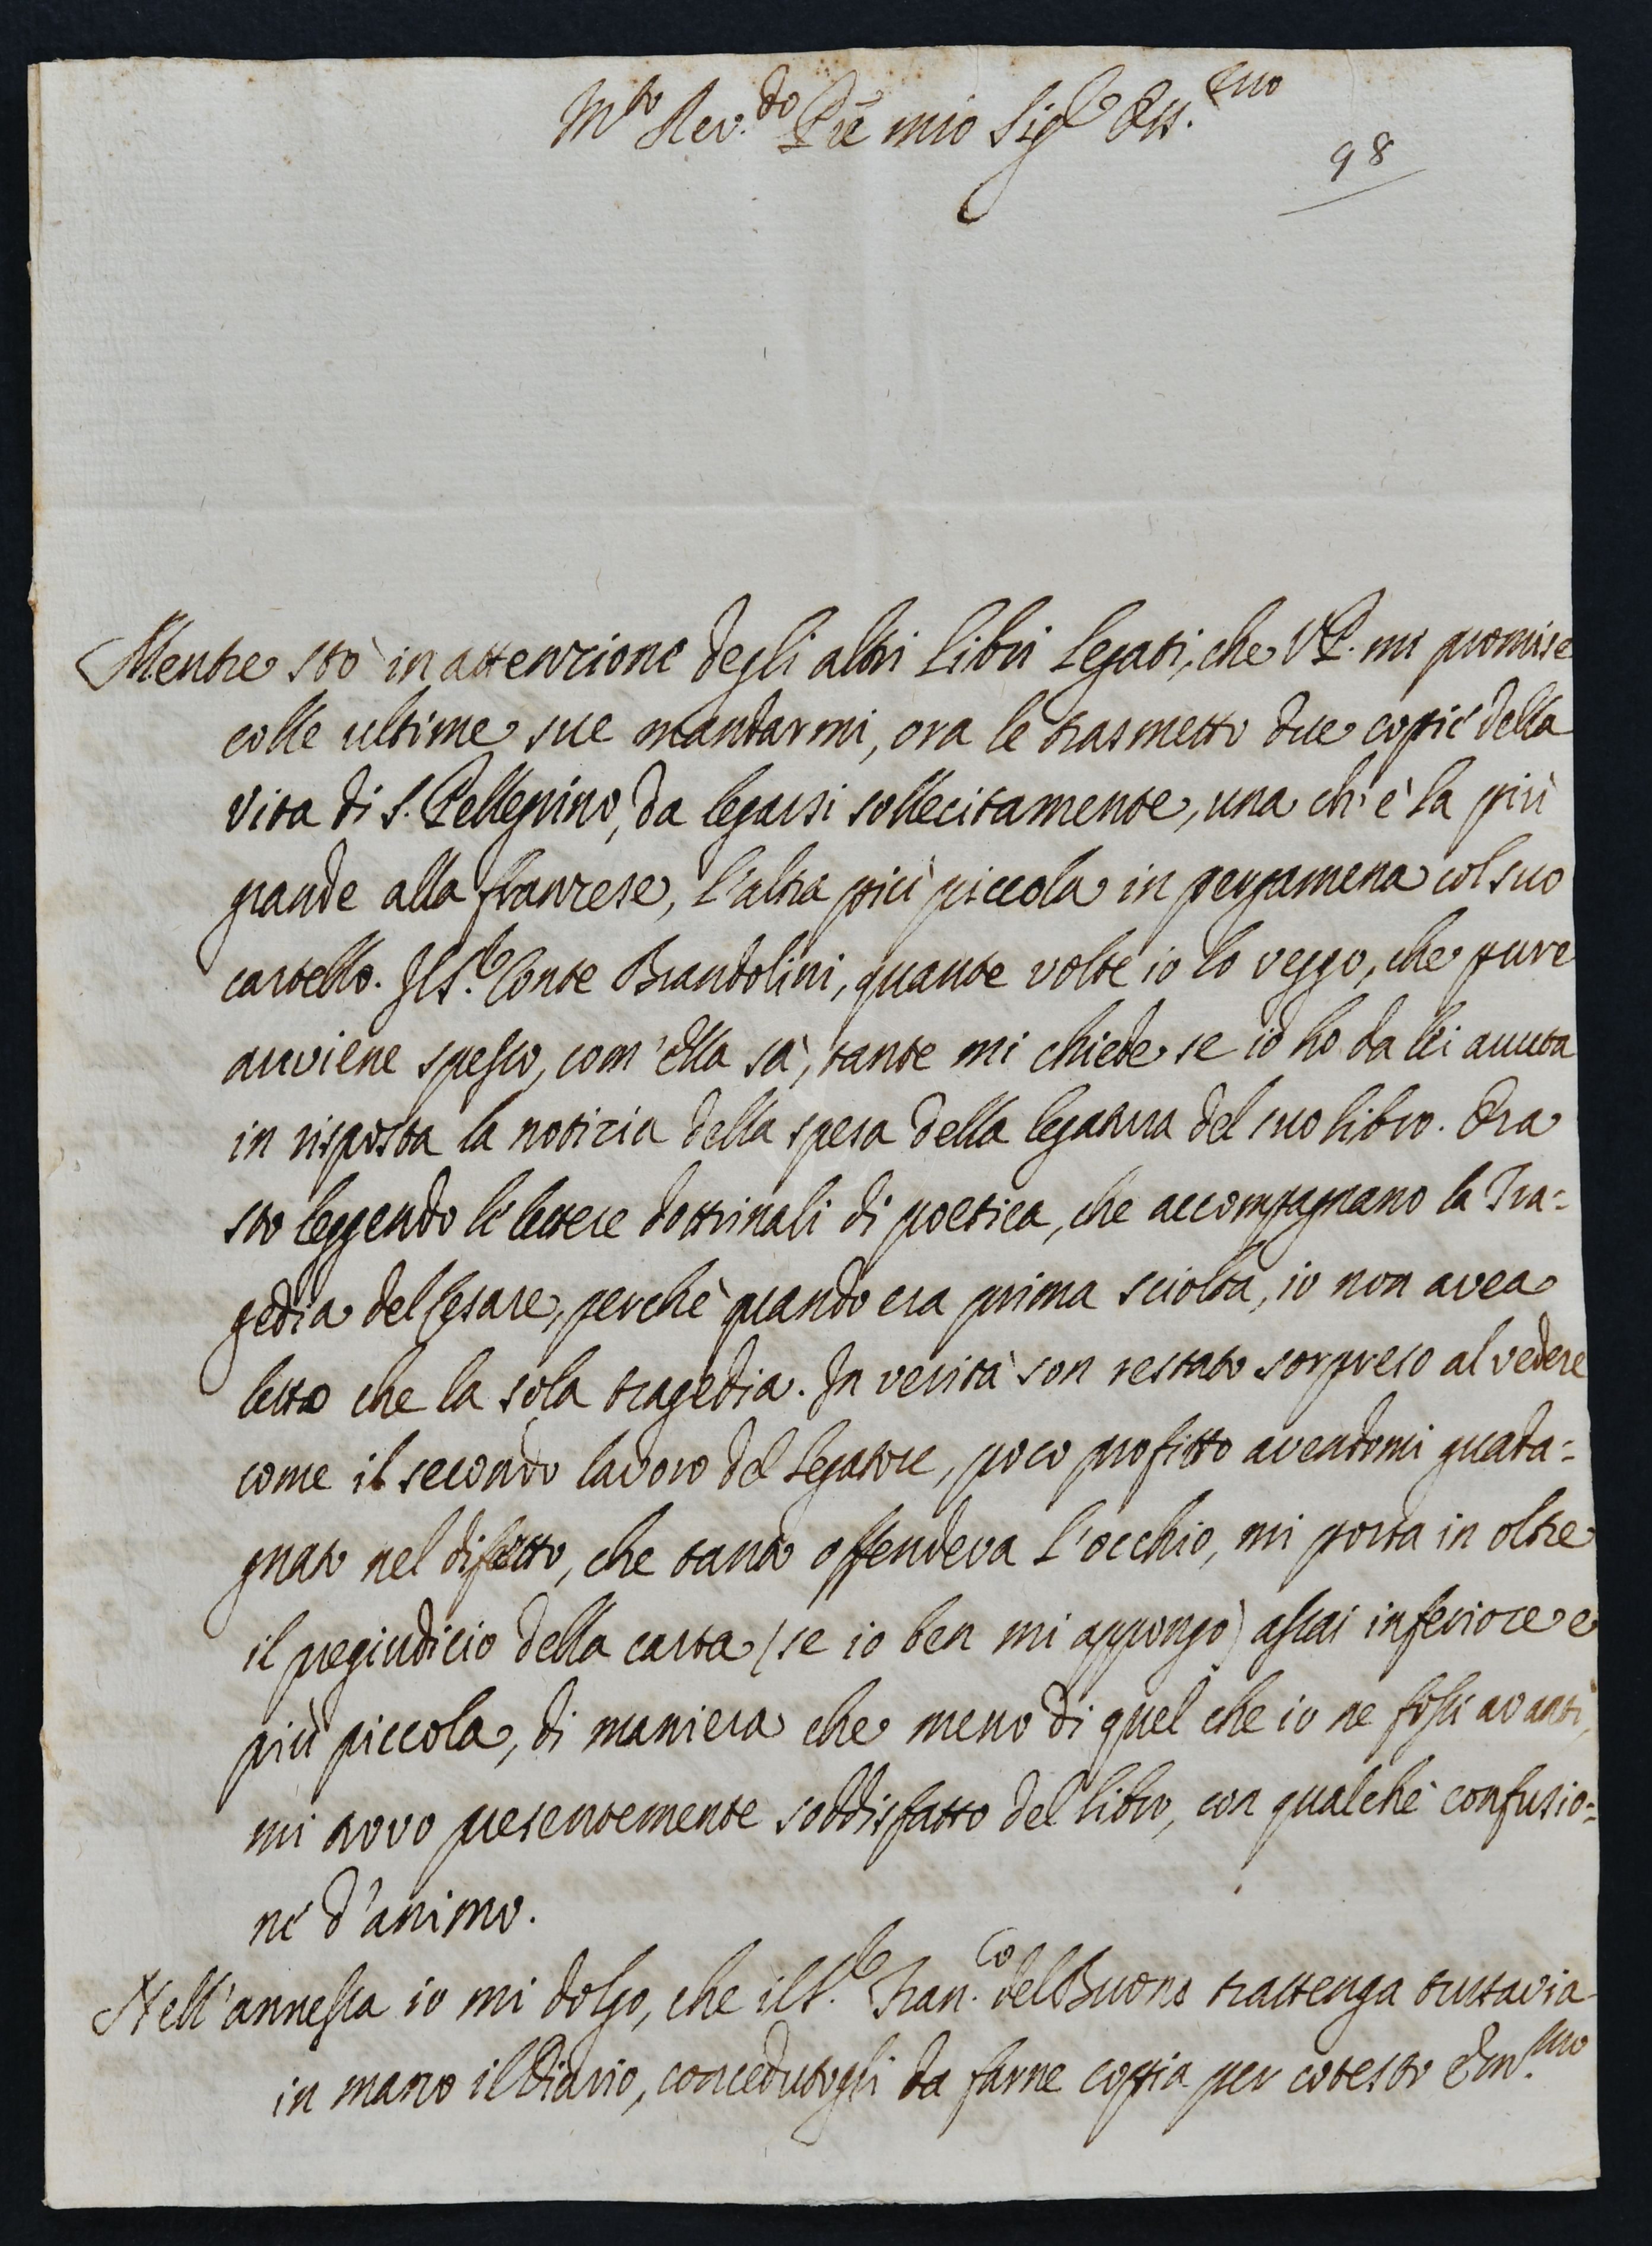 M.to Rev.do Prē mio Sig.e Oss.mo
98
Mentre stò in attenzione degli altri libri legati, che V. P. mi promise
colle ultime sue mandarmi, ora le trasmetto due copie della
vita di S. Pellegrino, da legarsi sollecitamente, una ch'è la più
grande alla franzese, l'altra più piccola in pergamena col suo
cartello. Il S.r Conte Brandolini, quante volte io lo veggo, che pure
avviene spesso, com'Ella sà, tante mi chiede se io ho da lei avuta
in risposta la notizia della spesa della legatura del suo libro. Ora
sto leggendo le lettere dottrinali di poetica, che accompagnano la Tra=
gedia del Cesare, perchè quando era prima sciolta, io non avea
letto che la sola tragedia. In verità son restato sorpreso al vedere
come il secondo lavoro del legatore, poco profitto avendomi guada=
gnato nel difetto, che tanto offendeva l'occhio, mi porta in oltre
il pregiudicio della carta (se io ben mi appongo) assai inferiore e
più piccola, di maniera che meno di quel che io ne fossi avanti,
mi trovo presentemente soddisfatto del libro, con qualche confusio=
ne d'animo.
Nell'annessa io mi dolgo, che il S.r Fran.co del Buono trattenga tuttavia
in mano il Diario, concedutogli da farne coppia per cotesto Em.mo